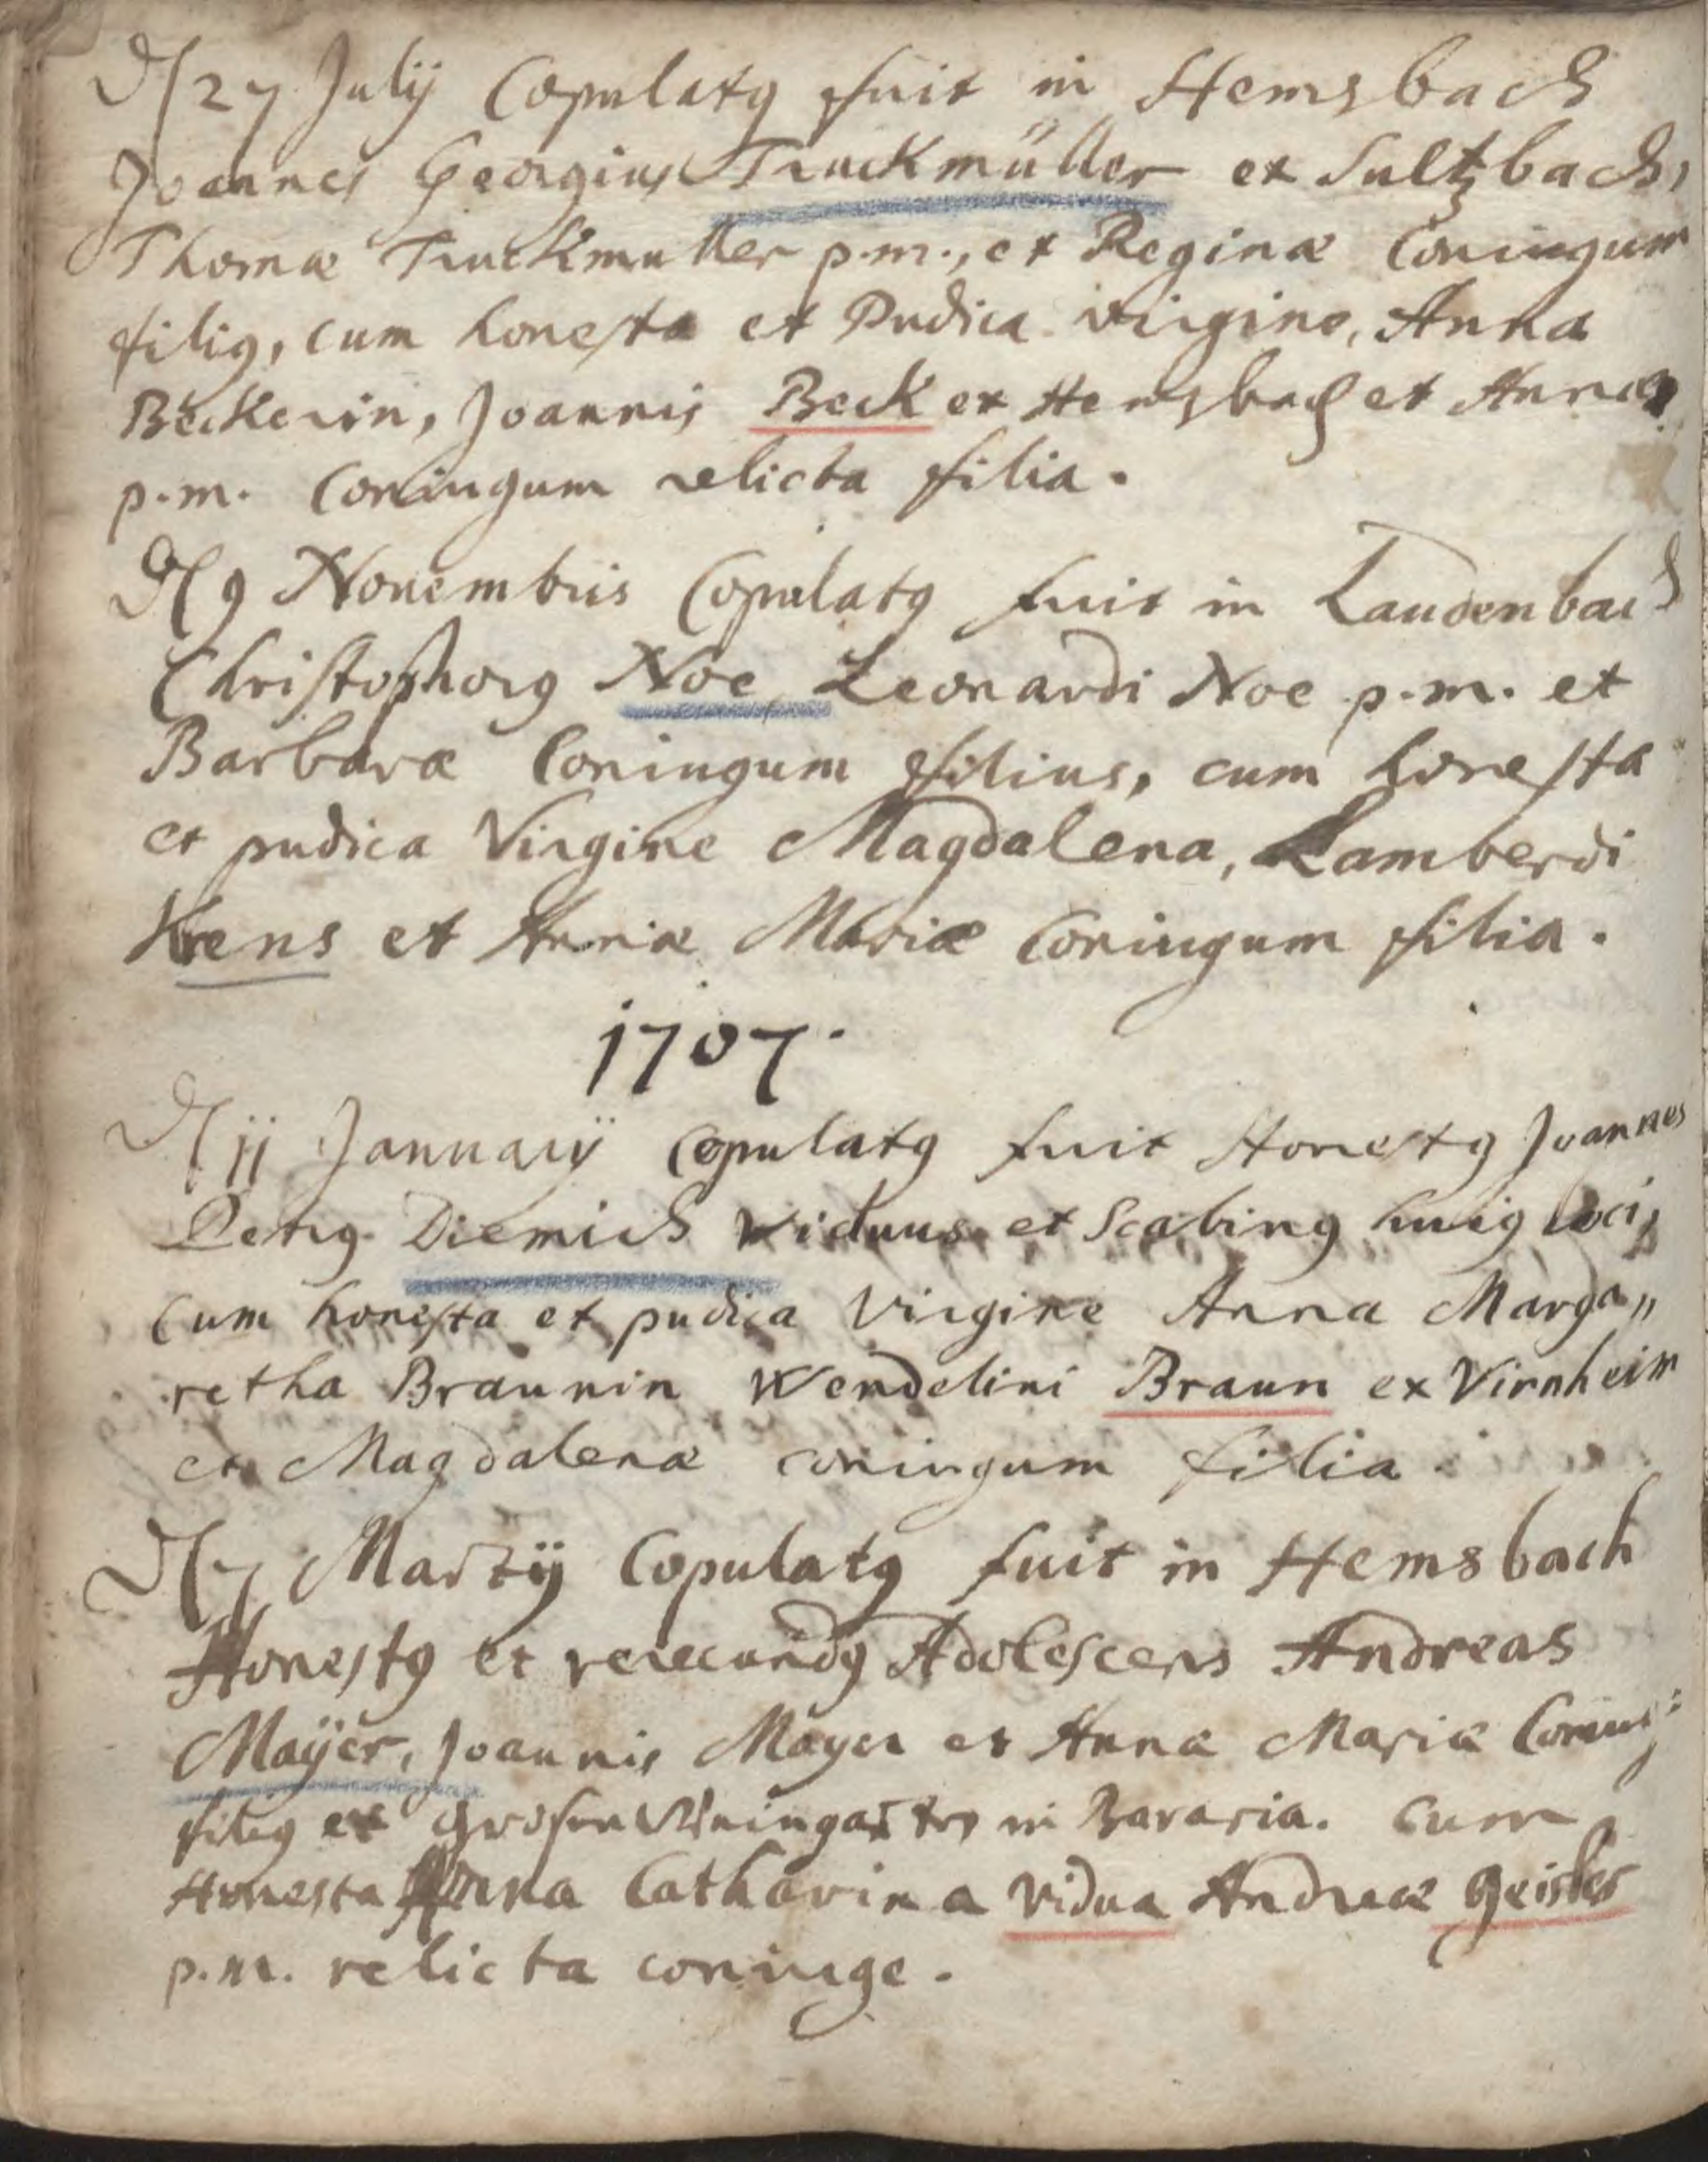 D 27 Julij Copulatꝰ fuit in Hemsbach
Joannes Georgius Truckmüller ex Sultzbach,
Thomæ Truckmuller p.m., et Reginæ Coniugum
filiꝰ, cum honesta et Pudica virgine, Anna
Beckerin, Joannis Beck ex Hemsbach et Annæ
p.m. Coniugum relicta filia.
D 9 Novembris Copulatꝰ fuit in Laudenbach
Christophorꝰ Noe, Leonardi Noe p.m. et
Barbaræ Coniugum filius, cum honesta
et pudica Virgine Magdalena, Lamberdi
Krens et Annæ Mariæ Coniugum filia.
1707.
D 11 Januarÿ Copulatꝰ fuit Honestꝰ Joannes
Petrꝰ Diemich Viduus et Scabinꝰ huiꝰ loci,
Cum honesta et pudica Virgine Anna Marga„
retha Braunin Wendelini Braun ex Virnheim
et Magdalenæ coniugum filia.
D 7 Martÿ Copulatꝰ fuit in Hemsbach
Honestꝰ et verecundꝰ Adolescens Andreas
Maÿer, Joannis Mayer et Annæ Mariæ Coniug:
filiꝰ ex in Bavaria. Cum
Honesta Anna Catharina vidua Andreæ Geisler
p.m. relicta coniuge.